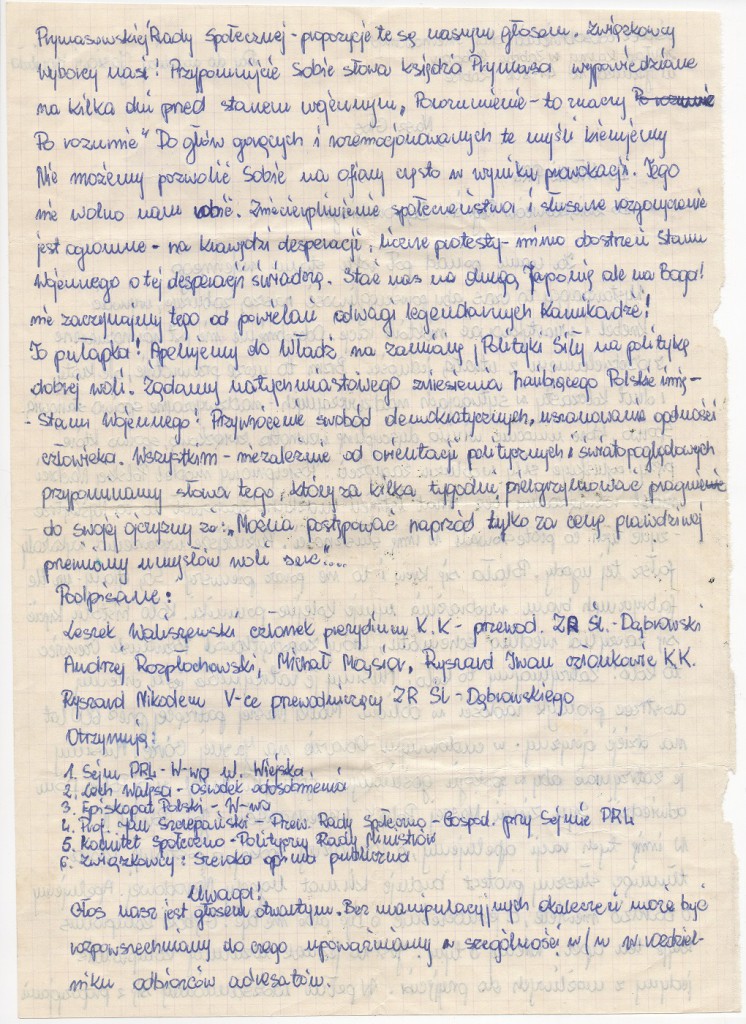 Prymasowskiej Rady Społecznej - propozycje te są naszym głosem. Związkowcy
Wyborcy nasi! Przypomnijcie sobie słowa księdza Prymasa wypowiedziane
na kilka dni przed stanem wojennym „Porozumienie - to znaczy Po rozumie
Po rozumie" Do głów gorących i rozemocjonowanych te myśli kierujemy
Nie możemy pozwolić Sobie na ofiary często w wyniku prowokacji. Tego
nie wolno nam robić. Zniecierpliwienie społeczeństwa i słuszne rozgoryczenie
jest ogromne - na krawędzi desperacji, liczne protesty - mimo obostrzeń Stanu
Wojennego o tej desperacji świadczą. Stać nas na drugą Japonię ale na Boga!
nie zaczynajmy tego od powielan odwagi legendarnych Kamikadze!
To pułapka! Apelujemy do Władz, na zamianę, Polityki Siły na politykę
dobrej woli. Żądamy natychmiastowego zniesienia hańbiącego Polskie imię -
- Stanu Wojennego! Przywrócenie swobód demokratycznych, uszanowania godności
człowieka. Wszystkim - niezależnie od orientacji politycznych i światopoglądowych
przypominamy słowa tego, który za kilka tygodni pielgrzymować pragnie
do swojej ojczyzny że: „Można postępować naprzód tylko za cenę prawdziwej
przemiany umysłów woli serc"....
Podpisane:
Leszek Waliszewski członek prezydium K.K - przewod. ZR Śl.-Dąbrowski
Andrzej Rozpłochowski, Michał Mąsior, Ryszard Iwan członkowie K.K.
Ryszard Nikodem V-ce przewodniczący ZR Śl - Dąbrowskiego
Otrzymują:
1. Sejm PRL - W-wa ul. Wiejska
2. Lech Wałęsa - Ośrodek odosobnienia
3. Episkopat Polski - W-wa
4. Prof. Jan Szczepański - Przew. Rady Społeczno - Gospod. przy Sejmie PRL
5. Komitet Społeczno - Polityczny Rady Ministrów
6. Związkowcy: Szeroka opinia publiczna
Uwaga!
Głos nasz jest głosem otwartym. Bez manipulacyjnych okaleczeń może być
rozpowszechniany do czego upoważniamy w szczególności w/m w rozdziel-
niku odbiorców adresatów.